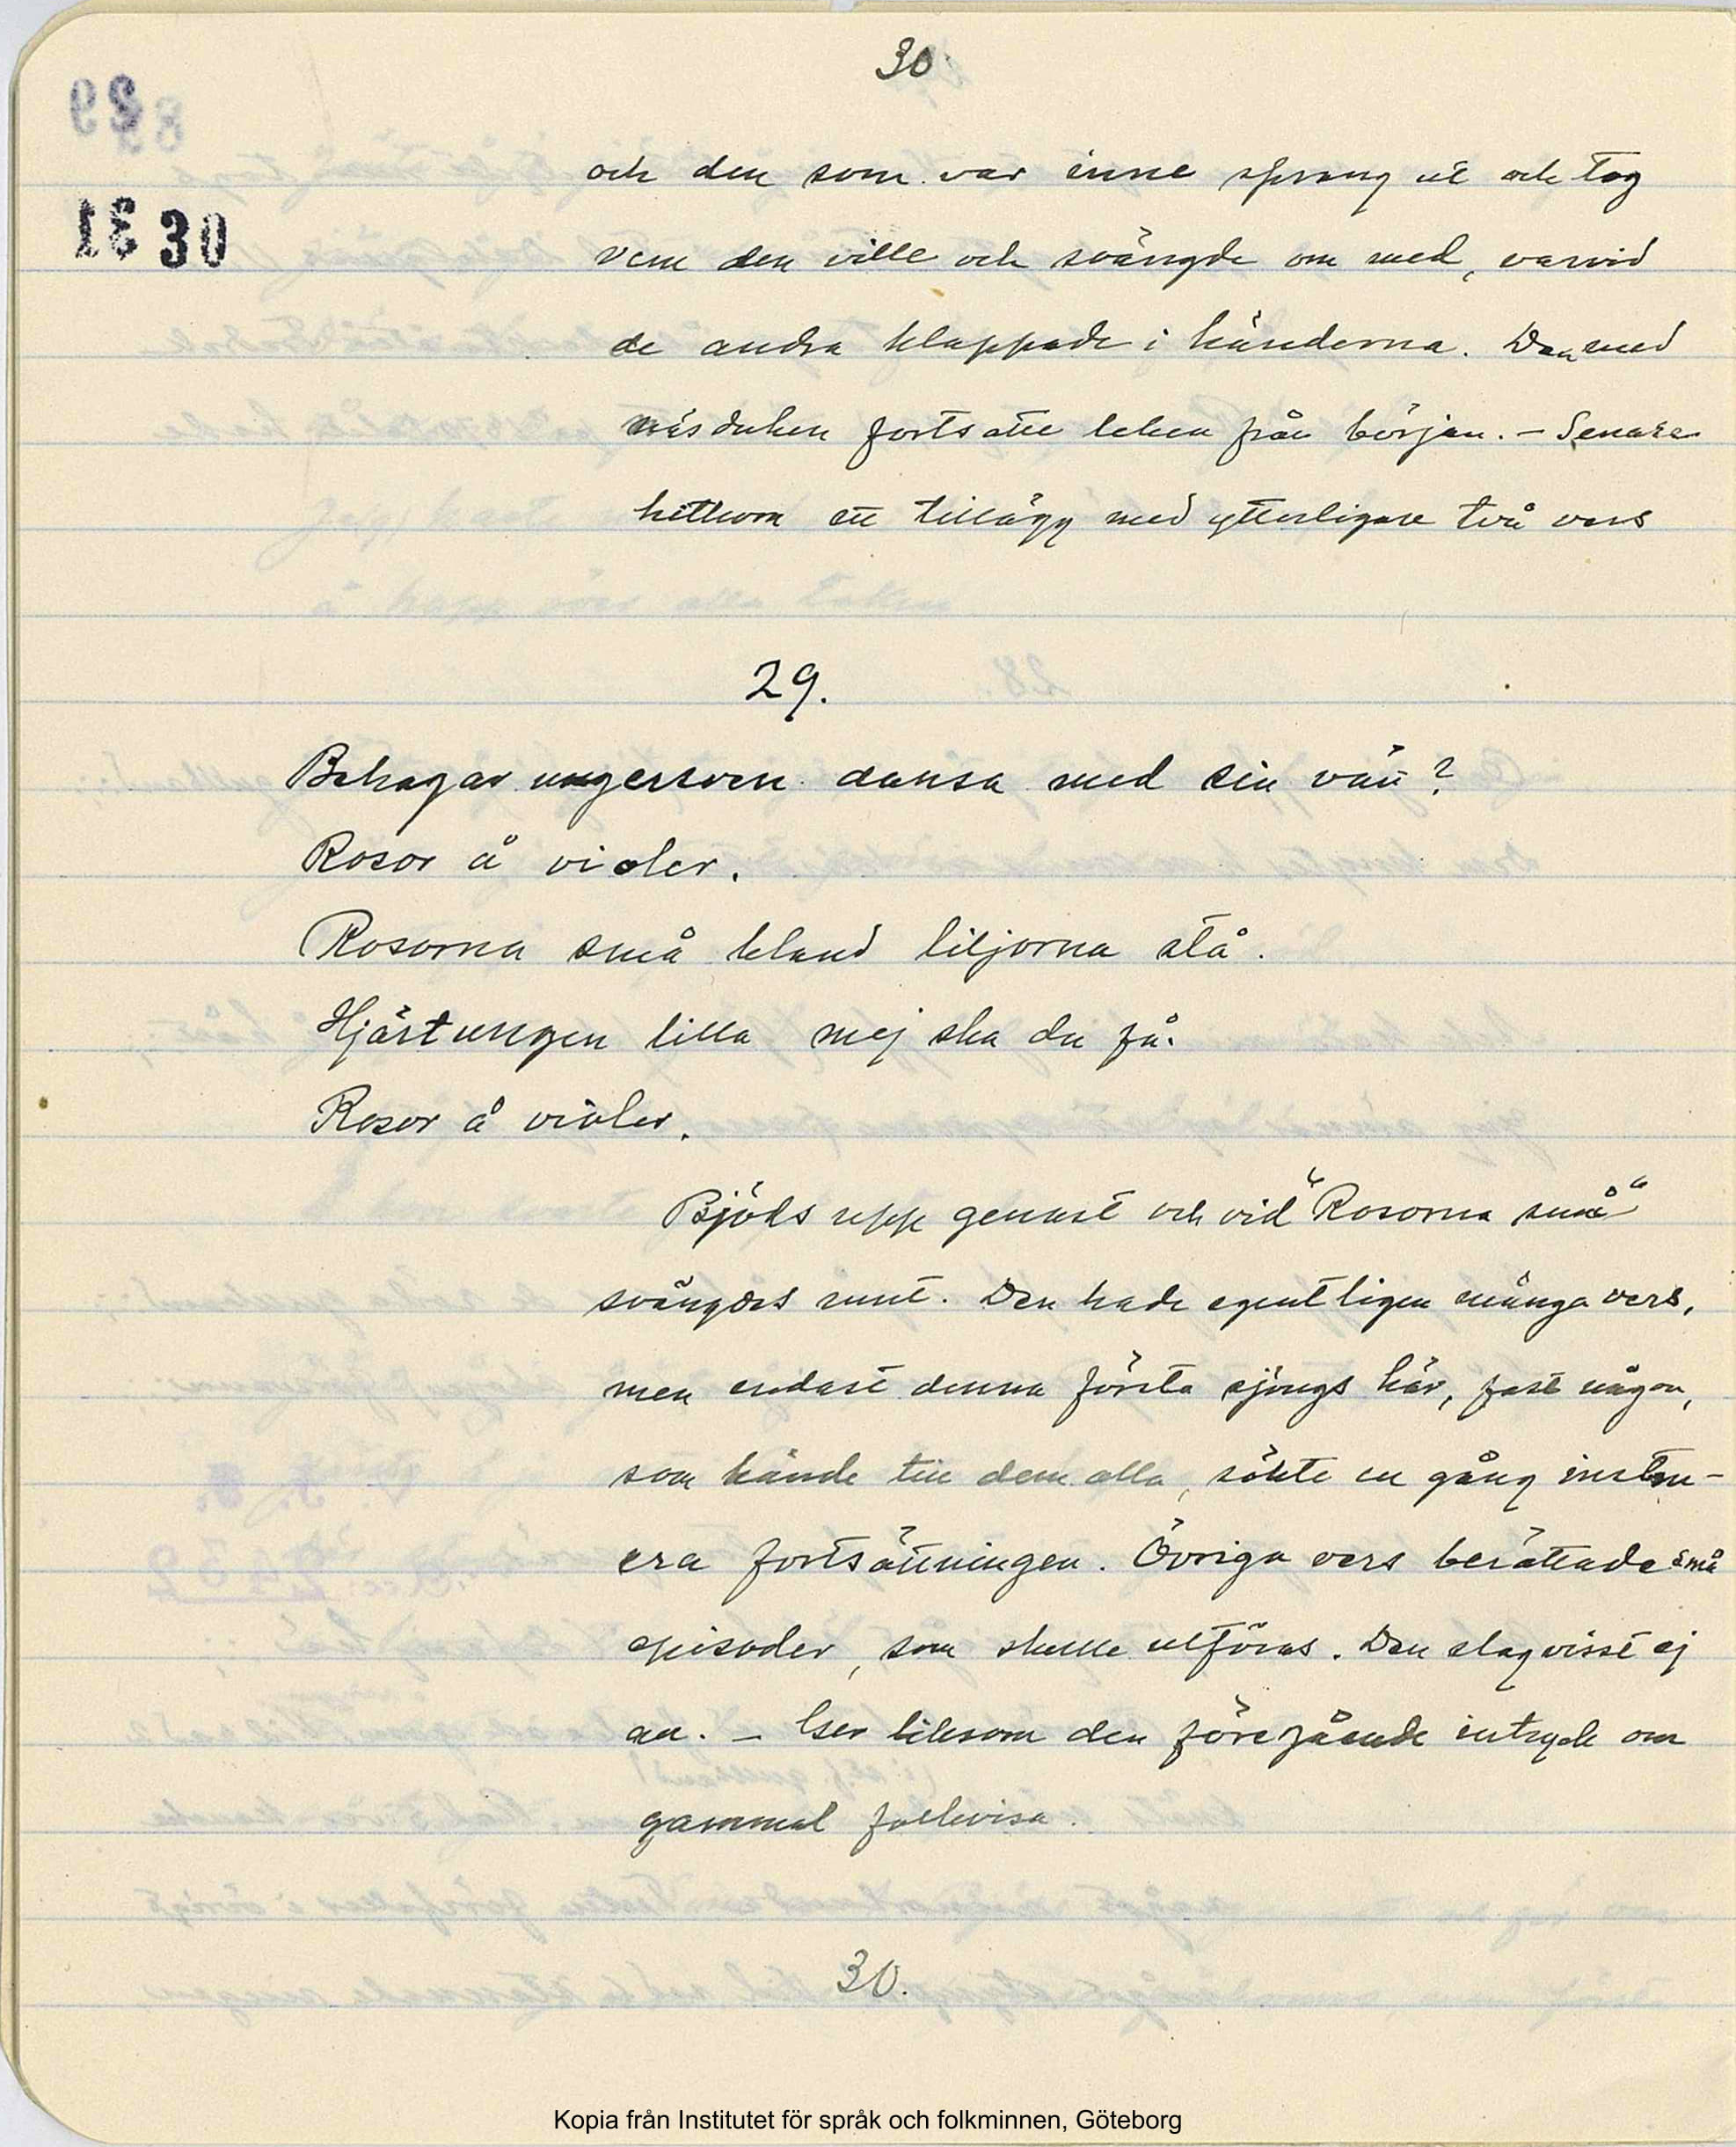 30
30
och den som var inne sprang ut och tog
vem den ville och svängde om med, varvid
de andra klappade i händerna. Den med
näsduken fortsatte leken från början. – Senare
hitkom ett tillägg med ytterligare två vers
29.
Behagar ungersven dansa med sin vän?
Rosor å violer.
Rosorna små bland liljorna stå.
Hjärtungen lilla mej ska du få.
Rosor å violer.
Bjöds upp genast och vid "Rosorna små"
svängdes runt. Den hade egentligen många vers,
men endast denna första sjöngs här, fast någon,
som kände till dem alla, sökte en gång instru-
era fortsättningen. Övriga vers berättade små
episoder, som skulle utföras. Den slog visst ej
an. – Ger liksom den föregående intryck om
gammal folkvisa.
30.
Kopia från Institutet för språk och folkminnen, Göteborg